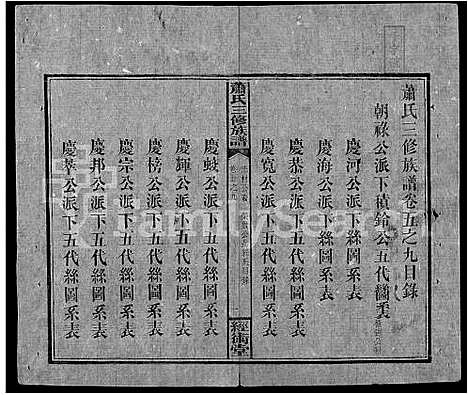 蕭氏三修族譜卷五之九目錄
朝祿公派下積鎗公五代
慶河公派下五代絲圖系表
慶海公派下絲圖系表
慶恭公派下五代絲圖系表
慶寬公派下五代絲圖系表
蕭氏三修族譜
經術堂
慶蛟公派下五代絲圖系表
慶輝公派下五代絲圖系表
慶榜公派下五代絲圖系表
慶宗公派下五代絲圖系表
慶邦公派下五代絲圖系表
慶萃公派下五代絲圖系表